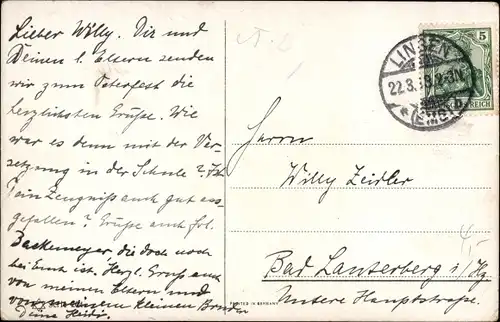 Lieber Willy. Dir und
Deinen l. Eltern senden
wir zum Osterfest die
herzlichsten Grüße. Wie
war es denn mit der Ver-
setzung in der Schule? Ist
Dein Zeugniß auch gut aus-
gefallen? Grüße auch Frl.
Backemeyer die doch noch
bei Euch ist. Herzl. Gruß auch
von meinen Eltern und
von meinem kleinen Bruder
Deine
LINGEN
22.3.13
(EMS)
5
REICH
Herrn
Willy Zeidler
Bad Lauterberg i/Hz.
Untere Hauptstraße.
4,-
PRINTED IN GERMANY